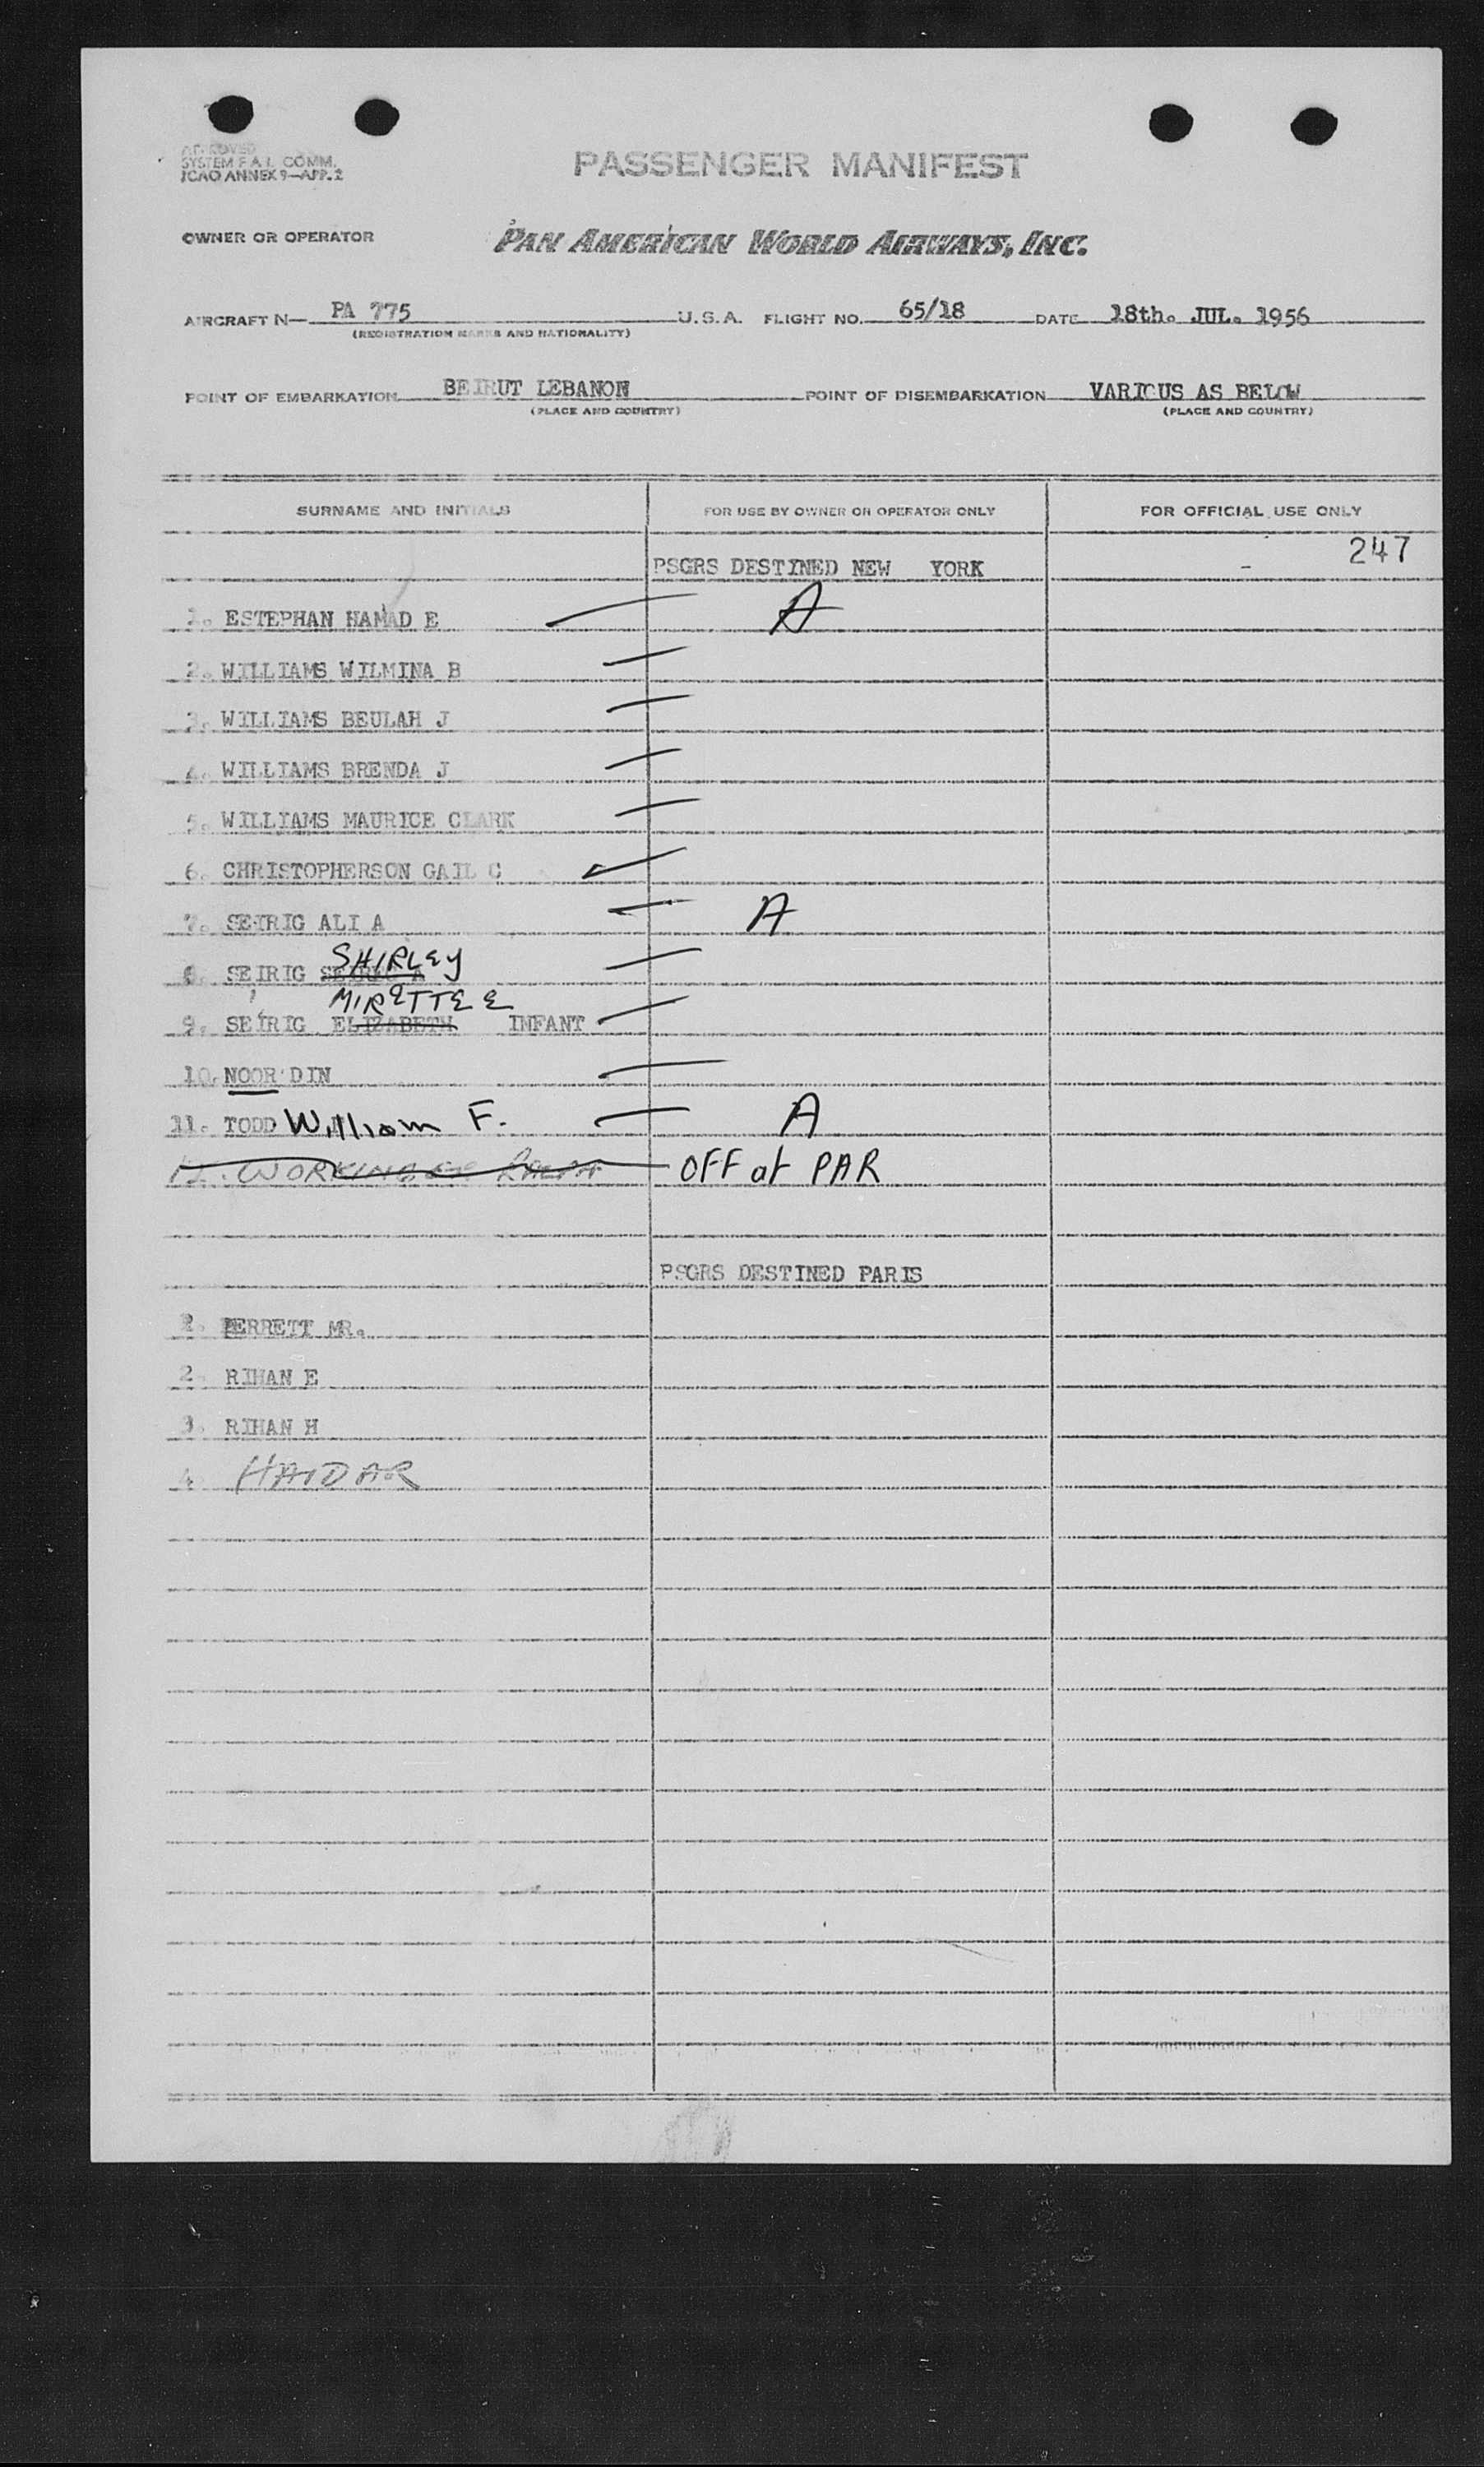 APPROVED
SYSTEM F.A.L. COMM.
ICAO ANNEX 9—APP. 2
PASSENGER MANIFEST
OWNER OR OPERATOR PAN AMERICAN WORLD AIRWAYS, INC.
AIRCRAFT N— PA 775 U.S.A. FLIGHT NO. 65/18 DATE 18th. JUL. 1956
(REGISTRATION MARKS AND NATIONALITY)
POINT OF EMBARKATION BEIRUT LEBANON POINT OF DISEMBARKATION VARIOUS AS BELOW
(PLACE AND COUNTRY) (PLACE AND COUNTRY)
SURNAME AND INITIALS FOR USE BY OWNER OR OPERATOR ONLY FOR OFFICIAL USE ONLY
247
PSGRS DESTINED NEW YORK
1. ESTEPHAN HAMAD E A
2. WILLIAMS WILMINA B
3. WILLIAMS BEULAH J
4. WILLIAMS BRENDA J
5. WILLIAMS MAURICE CLARK
6. CHRISTOPHERSON GAIL C
7. SEIRIG ALI A A
SHIRLEY
8. SEIRIG
MIRETTE E
9. SEIRIG ELIZABETH INFANT
10. NOOR DIN
11. TODD William F. A
12. OFF at PAR
PSGRS DESTINED PARIS
1. PERRETT MR.
2. RIHAN E
3. RIHAN H
4 HAIDAR